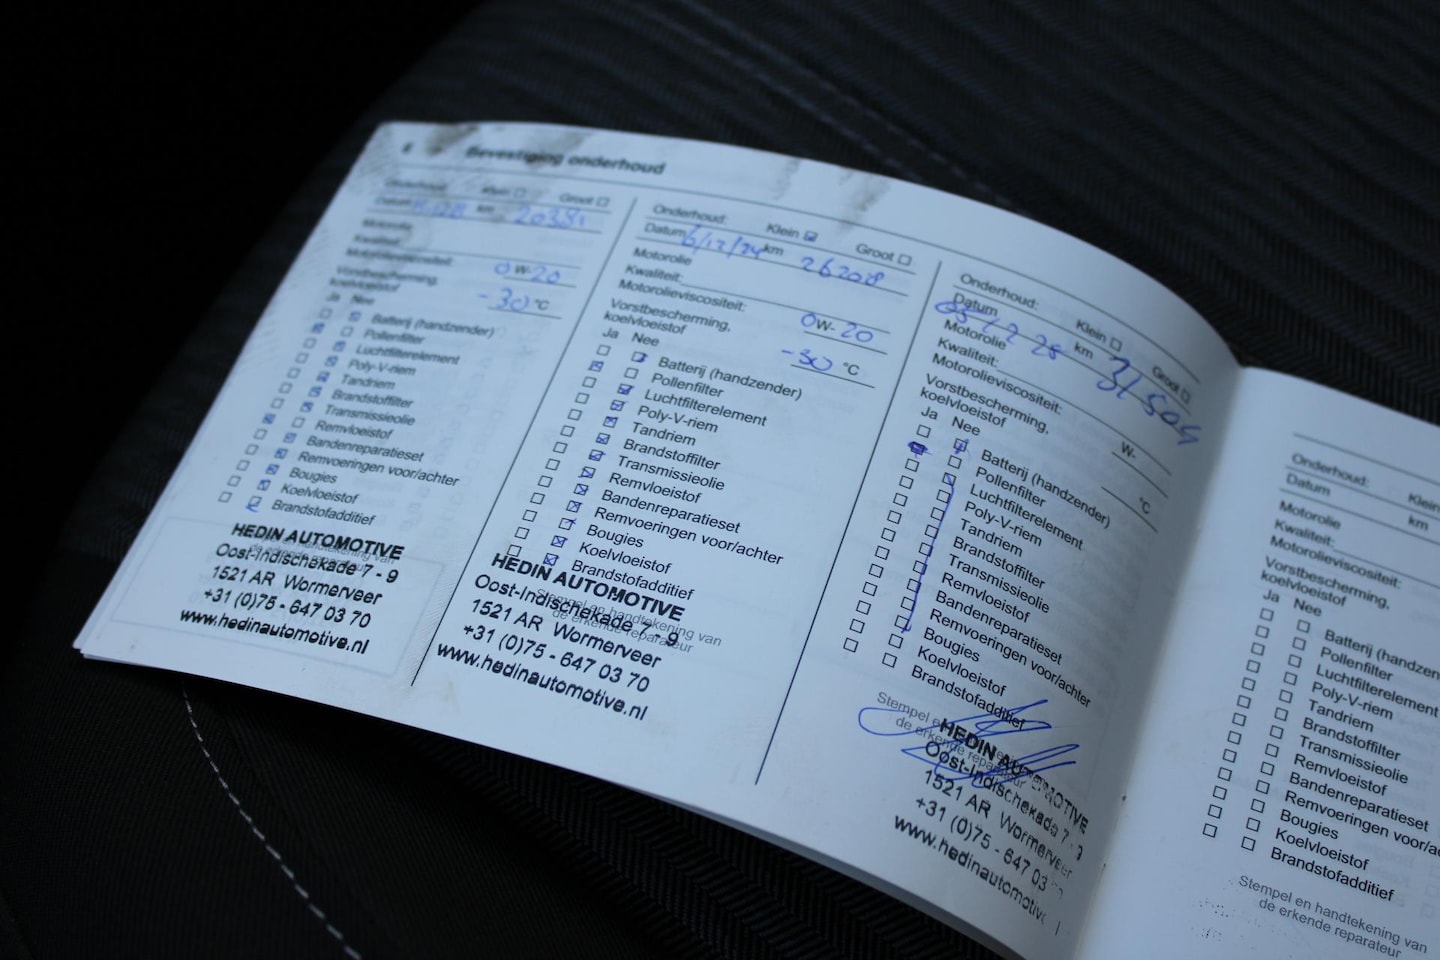 6 Bevestiging onderhoud
Onderhoud: Klein Groot
Datum km 20381
Motorolie
Kwaliteit:
Motorolieviscositeit: 0 W- 20
Vorstbescherming,
koelvloeistof -30 °C
Ja Nee
Batterij (handzender)
Pollenfilter
Luchtfilterelement
Poly-V-riem
Tandriem
Brandstoffilter
Transmissieolie
Remvloeistof
Bandenreparatieset
Remvoeringen voor/achter
Bougies
Koelvloeistof
Brandstofadditief
HEDIN AUTOMOTIVE
Oost-Indischekade 7 - 9
1521 AR Wormerveer
+31 (0)75 - 647 03 70
www.hedinautomotive.nl
Onderhoud: Klein Groot
Datum 6/12/24 km 262028
Motorolie
Kwaliteit:
Motorolieviscositeit: 0 W- 20
Vorstbescherming,
koelvloeistof -30 °C
Ja Nee
Batterij (handzender)
Pollenfilter
Luchtfilterelement
Poly-V-riem
Tandriem
Brandstoffilter
Transmissieolie
Remvloeistof
Bandenreparatieset
Remvoeringen voor/achter
Bougies
Koelvloeistof
Brandstofadditief
Stempel en handtekening van
de erkende reparateur
HEDIN AUTOMOTIVE
Oost-Indischekade 7 - 9
1521 AR Wormerveer
+31 (0)75 - 647 03 70
www.hedinautomotive.nl
Onderhoud: Klein Groot
Datum km 31504
Motorolie
Kwaliteit:
Motorolieviscositeit: W-
Vorstbescherming,
koelvloeistof °C
Ja Nee
Batterij (handzender)
Pollenfilter
Luchtfilterelement
Poly-V-riem
Tandriem
Brandstoffilter
Transmissieolie
Remvloeistof
Bandenreparatieset
Remvoeringen voor/achter
Bougies
Koelvloeistof
Brandstofadditief
Stempel en
de erkende reparateur
HEDIN AUTOMOTIVE
Oost-Indischekade 7 - 9
1521 AR Wormerveer
+31 (0)75 - 647 03
www.hedinautomotive
Onderhoud: Klein
Datum km
Motorolie
Kwaliteit:
Motorolieviscositeit:
Vorstbescherming,
koelvloeistof
Ja Nee
Batterij (handzen
Pollenfilter
Luchtfilterelement
Poly-V-riem
Tandriem
Brandstoffilter
Transmissieolie
Remvloeistof
Bandenreparatieset
Remvoeringen voor/a
Bougies
Koelvloeistof
Brandstofadditief
Stempel en handtekening van
de erkende reparateur